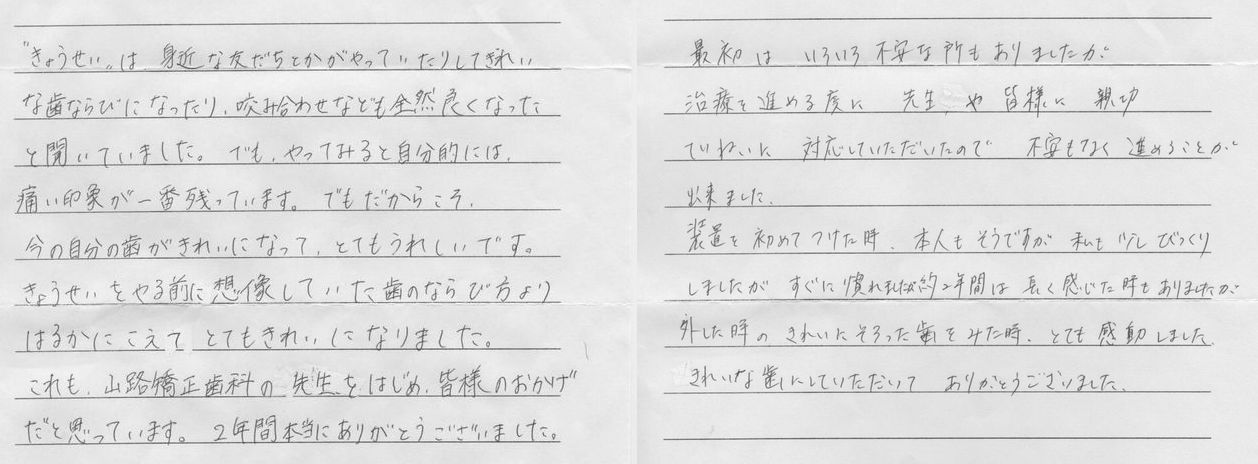 "きょうせい"は、身近な友だちとかがやっていたりしてきれい
な歯ならびになったり、咬み合わせなども全然良くなった
と聞いていました。でも、やってみると自分的には、
痛い印象が一番残っています。でもだからこそ、
今の自分の歯がきれいになって、とてもうれしいです。
きょうせいをやる前に想像していた歯のならび方より
はるかにこえてとてもきれいになりました。
これも、山路矯正歯科の先生をはじめ、皆様のおかげ
だと思っています。2年間本当にありがとうございました。
最初は いろいろ不安な所もありましたが
治療を進める度に 先生や皆様に 親切
ていねいに 対応していただいたので 不安もなく進めることが
出来ました。
装置を初めてつけた時、本人もそうですが 私も少しびっくり
しましたが すぐに慣れました約2年間は長く感じた時もありましたが
外した時の きれいにそろった歯をみた時、とても感動しました。
きれいな歯にしていただいて ありがとうございました。